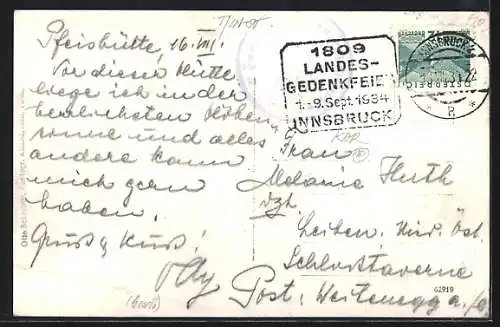 Pfeishütte, 16. VIII.
Vor dieser Hütte
liege ich in der
berühmten Höhen-
sonne und alles
andere kann
mich gern
haben.
Gruß & Kuß!
1809
LANDES-
GEDENKFEIER
1.-9. Sept. 1934
INNSBRUCK
INNSBRUCK 2
ÖSTERREICH
Frau
Melanie Huth
dzt.
Leiben. Nied. Öst.
Schlosstaverne
Post: Weitenegg a./D
62919